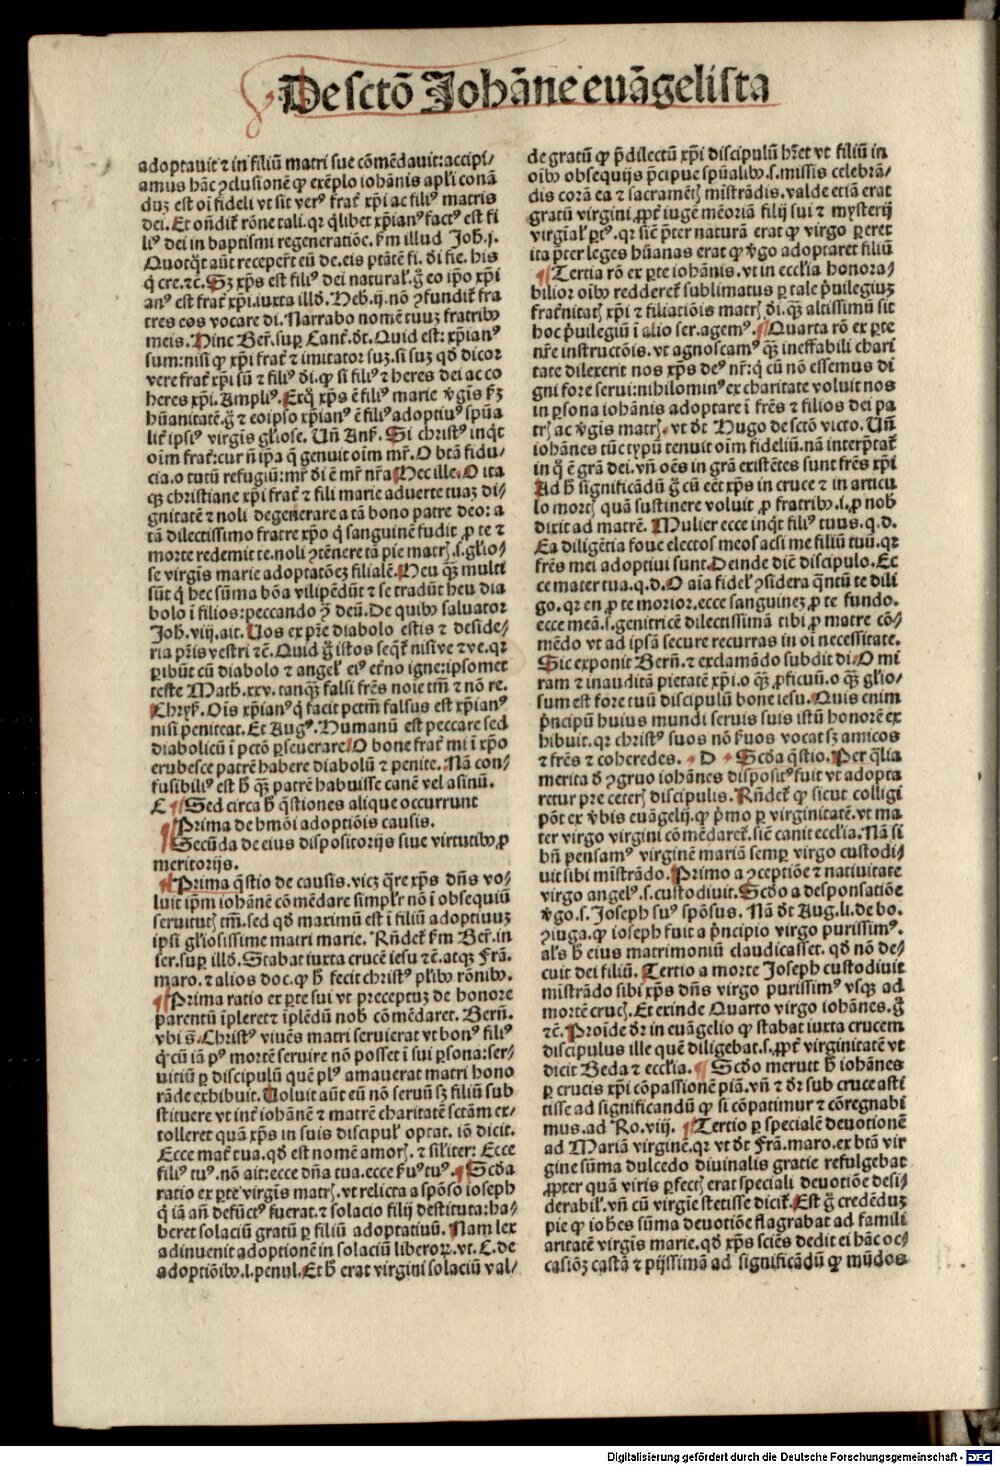 De sctō Johāne euāgelista
adoptauit ⁊ in filiū matri sue cōmēdauit: accipi/
amus hāc ꝯclusionē ꝙ exēplo iohānis apl'i conā
duz est oī fideli vt sit verꝰ frat̄ xp̄i ac filiꝰ matris
dei. Et on̄dit̄ rōne tali. qꝛ q̇libet xp̄ianꝰ factꝰ est fi
liꝰ dei in baptismi regeneratiōe. ẜm illud Joh. j.
Quotq̇t aūt recepert̄ eū de. eis ptātē fi. di fie. his
q̇ cre. ⁊ē. Sꝫ xp̄s est filiꝰ dei natural'. g̊ eo ip̄o xp̄i
anꝰ est frat̄ xp̄i. iuxta illd̄. Heb. ij. nō ꝯfundit̄ fra
tres eos vocare di. Narrabo nomē tuuz fratribꝰ
meis. Hinc Ber̄. suꝑ Cant̄. dt̄. Quid est: xp̄ianꝰ
sum: nisi ꝙ xp̄i frat̄ ⁊ imitator suz. si suz qd̄ dicor
vere frat̄ xp̄i sū ⁊ filiꝰ di. ꝙ si filiꝰ ⁊ heres dei ac co
heres xp̄i. Ampliꝰ. Exq̇ xp̄s ē filiꝰ marie v̄gīs ẜꝫ
hūanitatē. g̊ ⁊ eo ipso xp̄ianꝰ ē filiꝰ adoptiuꝰ spūa
lit̄ ipsiꝰ virgīs gl'iose. Uñ Anẜ. Si christꝰ inq̇t
oīm frat̄: cur n̄ ip̄a q̄ genuit oīm mr̄. O btā fidu/
cia. o tutū refugiū: mr̄ di ē mr̄ nr̄a Hec ille. O ita
qꝫ christiane xp̄i frat̄ ⁊ fili marie aduerte tuaz di/
gnitatē ⁊ noli degenerare a tā bono patre deo: a
tā dilectissimo fratre xp̄o q̇ sanguinē fudit ꝓ te ⁊
morte redemit te. noli ꝯtēnere tā pie matꝝ .s. gl'io/
se virgīs marie adoptatōez filialē. Heu qꝫ multi
sūt q̇ hec sūma bōa vilipēdūt ⁊ se tradūt heu dia
bolo ī filios: peccando ꝯ̄ deū. De quibꝰ saluator
Joh. viij. ait. Uos ex pr̄e diabolo estis ⁊ deside/
ria pr̄is vestri ⁊ē. Quid g̊ istos seq̇t̄ nisi ve ⁊ ve. qꝛ
ꝑibūt cū diabolo ⁊ angel' eiꝰ et̄no igne: ipsomet
teste Math. xxv. tanqꝫ falsi frēs noīe tm̄ ⁊ nō re.
Chryẜ. Oīs xp̄ianꝰ q̇ facit pctm̄ falsus est xp̄ianꝰ
nisi peniteat. Et Augꝰ. Humanū est peccare sed
diabolicū ī pctō ꝑseuerare. O bone frat̄ mi ī xp̄o
erubesce patrē habere diabolū ⁊ penite. Nā con/
fusibiliꝰ est h̄ qꝫ patrē habuisse canē vel asinū.
C ¶ Sed circa h̄ q̄stiones alique occurrunt
¶ Prima de hmōi adoptiōis causis.
¶ Secūda de eius dispositorijs siue virtutibꝰ, ꝓ
meritorijs.
¶ Prima q̄stio de causis. vicꝫ q̄re xp̄s dn̄s vo/
luit ip̄m iohānē cōmēdare simpl'r nō ī obsequiū
seruitutꝭ tm̄. sed qd̄ maximū est ī filiū adoptiuuz
ipsi gl'iosissime matri marie. Rn̄det̄ ẜm Ber̄. in
ser. suꝑ illd̄. Stabat iuxta crucē iesu ⁊ē. atqꝫ Frā.
maro. ⁊ alios doc. ꝙ h̄ fecit christꝰ pl'ibꝰ rōnibꝰ.
¶ Prima ratio ex ꝑte sui vt preceptuz de honore
parentū īpleret ⁊ īplēdū nob̄ cōmēdaret. Bern̄.
vbi s̄. Christꝰ viuēs matri seruierat vt bonꝰ filiꝰ
q̇ cū iā pꝰ mortē seruire nō posset ī sui ꝑsona: ser/
uitiū ꝑ discipulū quē plꝰ amauerat matri hono
rāde exhibuit. Uoluit aūt eū nō seruū sꝫ filiū sub
stituere vt int̄ iohānē ⁊ matrē charitatē sctām ex/
tolleret quā xp̄s in suis discipul' optat. iō dicit.
Ecce mat̄ tua. qd̄ est nomē amorꝭ. ⁊ sil'iter: Ecce
filiꝰ tuꝰ. nō ait: ecce dn̄a tua. ecce ẜuꝰ tuꝰ. ¶ Scd̄a
ratio ex ꝑte virgīs matrꝭ. vt relicta a spōso ioseph
q̇ iā an̄ defūctꝰ fuerat. ⁊ solacio filij destituta: ha/
beret solaciū gratū ꝑ filiū adoptatiuū. Nam lex
adinuenit adoptionē in solaciū liberoꝝ. vt. C. de
adoptiōibꝰ. l. penul. Et h̄ erat virgini solaciū val/
de gratū ꝙ p̄dilectū xp̄i discipulū hr̄et vt filiū in
oībꝰ obsequijs p̄cipue spūalibꝰ .s. missis celebrā/
dis corā ea ⁊ sacramētꝭ mīstrādis. valde etiā erat
gratū virgini, ꝓpt̄ iugē mēoriā filij sui ⁊ mysterij
virgīal' ꝑtꝰ. qꝛ sic̄ p̄ter naturā erat ꝙ virgo ꝑeret
ita p̄ter leges hūanas erat ꝙ v̄go adoptaret filiū
¶ Tertia rō ex ꝑte iohānis. vt in eccl'ia honora/
bilior oībꝰ redderet̄ sublimatus ꝑ tale p̄uilegiuz
frat̄nitatꝭ xp̄i ⁊ filiatiōis matrꝭ di. qꝫ altissimū sit
hoc p̄uilegiū ī alio ser. agemꝰ. ¶ Quarta rō ex ꝑte
nr̄e instructōis. vt agnoscamꝰ qꝫ ineffabili chari
tate dilexerit nos xp̄s deꝰ nr̄: q̇ cū nō essemus di
gni fore serui: nihilominꝰ ex charitate voluit nos
in ꝑsona iohānis adoptare ī frēs ⁊ filios dei pa
trꝭ ac v̄gīs matrꝭ. vt dt̄ Hugo de sctō victo. Uñ
iohānes tūc typū tenuit oīm fideliū. nā interp̄tat̄
in q̇ ē grā dei. vn̄ oēs in grā existētes sunt frēs xp̄i
Ad h̄ significādū g̊ cū eēt xp̄s in cruce ⁊ in articu
lo mortꝭ quā sustinere voluit ꝓ fratribꝰ .i. ꝓ nob̄
dixit ad matrē. Mulier ecce inq̇t filiꝰ tuus. q. d.
Ea diligētia foue electos meos acsi me filiū tuū. qꝛ
frēs mei adoptiui sunt. Deinde dic̄ discipulo. Ec
ce mater tua. q. d. O aīa fidel' ꝯsidera q̄ntū te dili
go. qꝛ en ꝓ te morior. ecce sanguinez ꝓ te fundo.
ecce meā .s. genitricē dilectissimā tibi ꝓ matre cō/
mēdo vt ad ipsā secure recurras in oī necessitate.
Sic exponit Bern̄. ⁊ exclamādo subdit di. O mi
ram ⁊ inauditā pietatē xp̄i. o qꝫ ꝓficuū. o qꝫ gl'io/
sum est fore tuū discipulū bone iesu. Quis enim
p̄ncipū huius mundi seruis suis istū honorē ex
hibuit. qꝛ christꝰ suos nō ẜuos vocat sꝫ amicos
⁊ frēs ⁊ coheredes. ¶ D ¶ Scd̄a q̄stio. Per q̄lia
merita ⁊ ꝯgruo iohānes dispositꝰ fuit vt adopta
retur pre ceterꝭ discipulis. Rn̄det̄ ꝙ sicut colligi
pōt ex v̄bis euāgelij. ꝙ p̄mo ꝑ virginitatē. vt ma
ter virgo virgini cōmēdaret̄. sic̄ canit eccl'ia. Nā si
bn̄ pensamꝰ virginē mariā semꝑ virgo custodi/
uit sibi mīstrādo. Primo a ꝯceptiōe ⁊ natiuitate
virgo angelꝰ .s. custodiuit. Scd̄o a desponsatiōe
v̄go .s. Joseph suꝰ spōsus. Nā dt̄ Aug. li. de bo.
ꝯiuga. ꝙ ioseph fuit a p̄ncipio virgo purissimꝰ.
al's h̄ eius matrimoniū claudicasset. qd̄ nō de/
cuit dei filiū. Tertio a morte Joseph custodiuit
mīstrādo sibi xp̄s dn̄s virgo purissimꝰ vsqꝫ ad
mortē crucꝭ. Et exinde Quarto virgo iohānes. g̊
⁊ē. Proīde dr̄ in euāgelio ꝙ stabat iuxta crucem
discipulus ille quē diligebat .s. ꝓpt̄ virginitatē vt
dicit Beda ⁊ eccl'ia. ¶ Scd̄o meruit h̄ iohānes
ꝑ crucis xp̄i cōpassionē piā. vn̄ ⁊ dr̄ sub cruce asti
tisse ad significandū ꝙ si cōpatimur ⁊ cōregnabi
mus. ad Ro. viij. ¶ Tertio ꝑ specialē deuotionē
ad Mariā virginē. qꝛ vt dt̄ Frā. maro. ex btā vir
gine sūma dulcedo diuinalis gratie refulgebat
ꝓpter quā viris ꝑfectꝭ erat speciali deuotiōe desi/
derabil'. vn̄ cū virgīe stetisse dicit̄. Est g̊ credēduz
pie ꝙ ioh̄es sūma deuotiōe flagrabat ad famili
aritatē virgīs marie. qd̄ xp̄s sciēs dedit ei hāc oc/
casiōꝫ castā ⁊ pijssimā ad significādū ꝙ mūdos
Digitalisierung gefördert durch die Deutsche Forschungsgemeinschaft - DFG